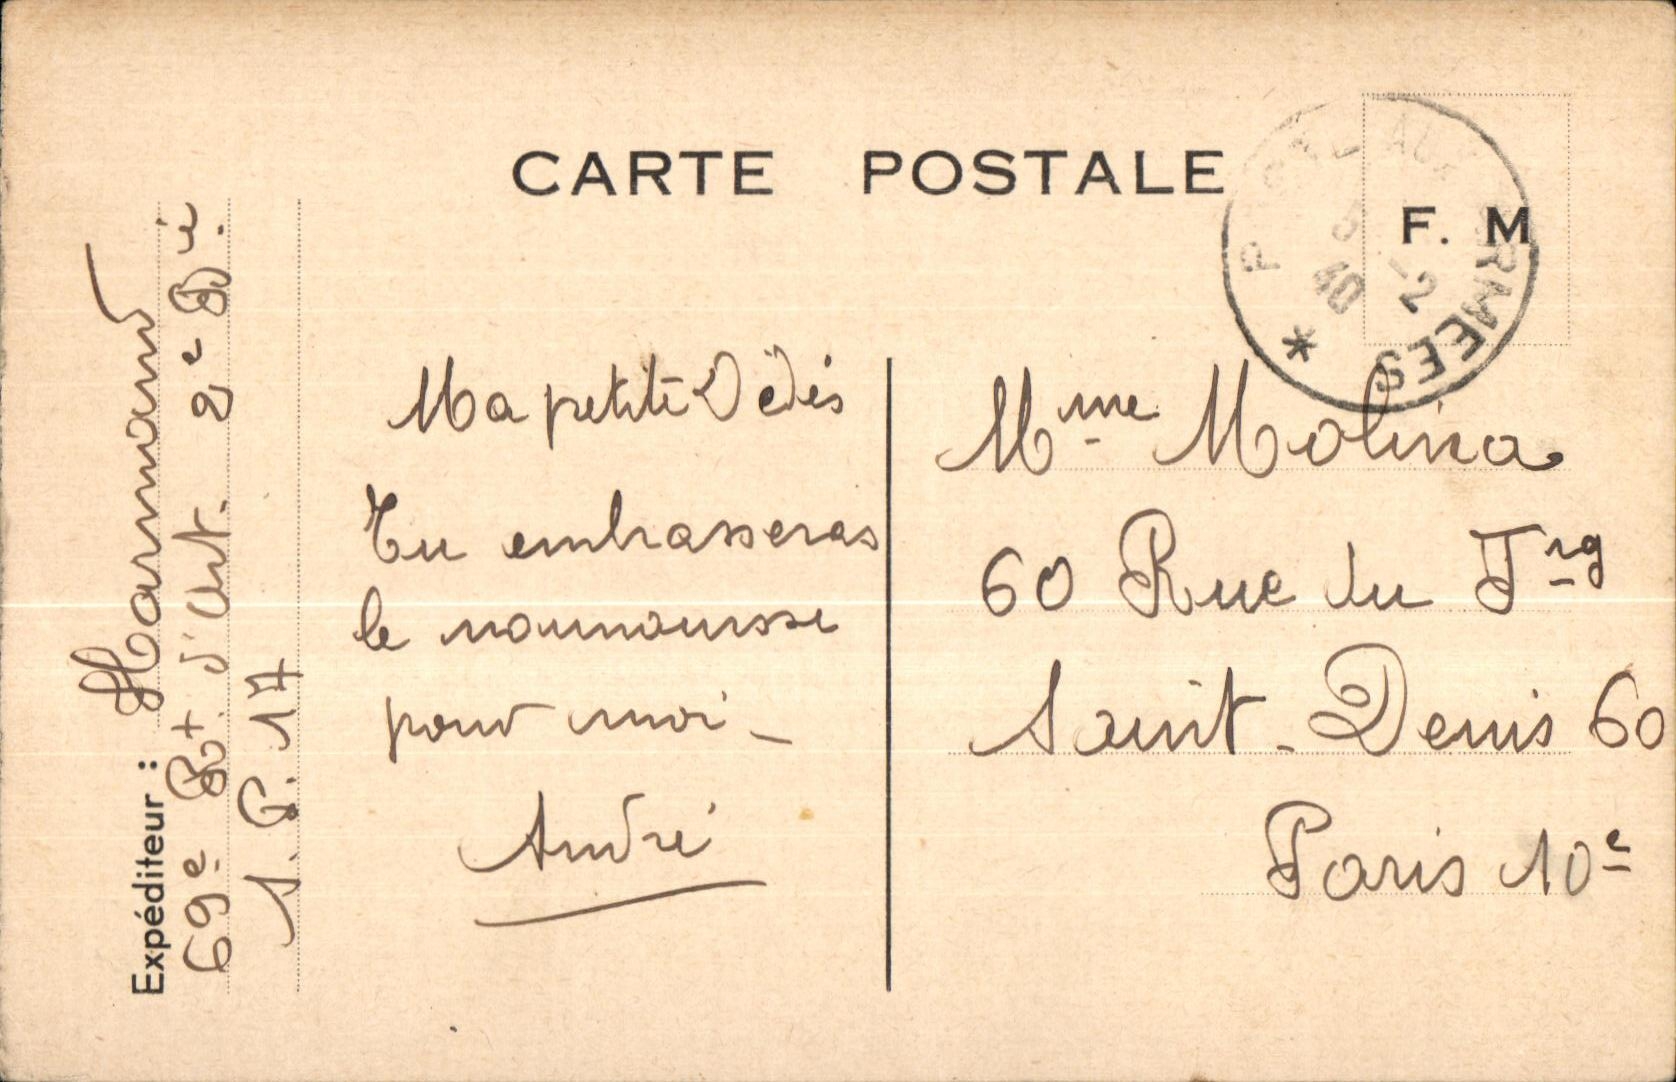 CARTE POSTALE
F. M
POSTE AUX ARMEES *
5 -2
40
Expéditeur : Harmand
69e Rt d'Art. 2e Bie.
S. P. 17
Ma petite Dédés
Tu embrasseras
le nounourss
pour moi -
André
Mme Molina
60 Rue du Frg
Saint-Denis 60
Paris 10e